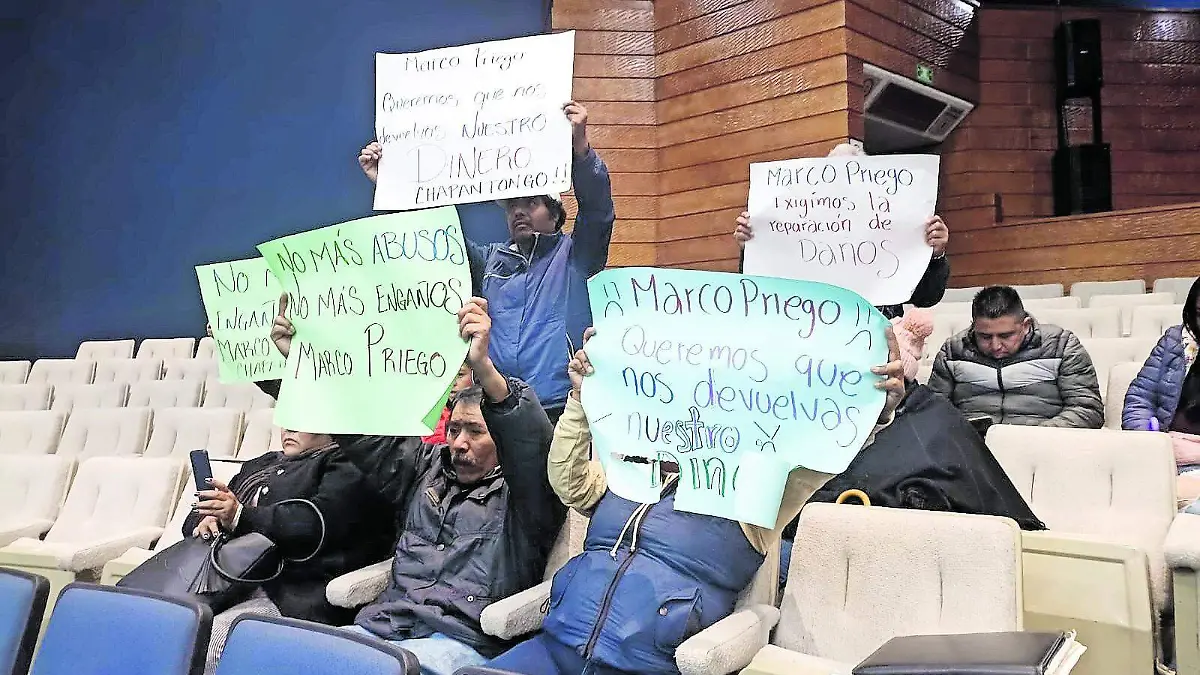 Marco Priego
Queremos, que nos
devuelvas NUESTRO
DINERO
CHAPANTONGO!!
Marco Priego
Exigimos la
reparación de
Daños
NO MÁS ABUSOS
NO MÁS ENGAÑOS
MARCO PRIEGO
NO
ENGAÑ
MARCO
CHAPA
¡¡Marco Priego!!
Queremos que
nos devuelvas
nuestro
DIN